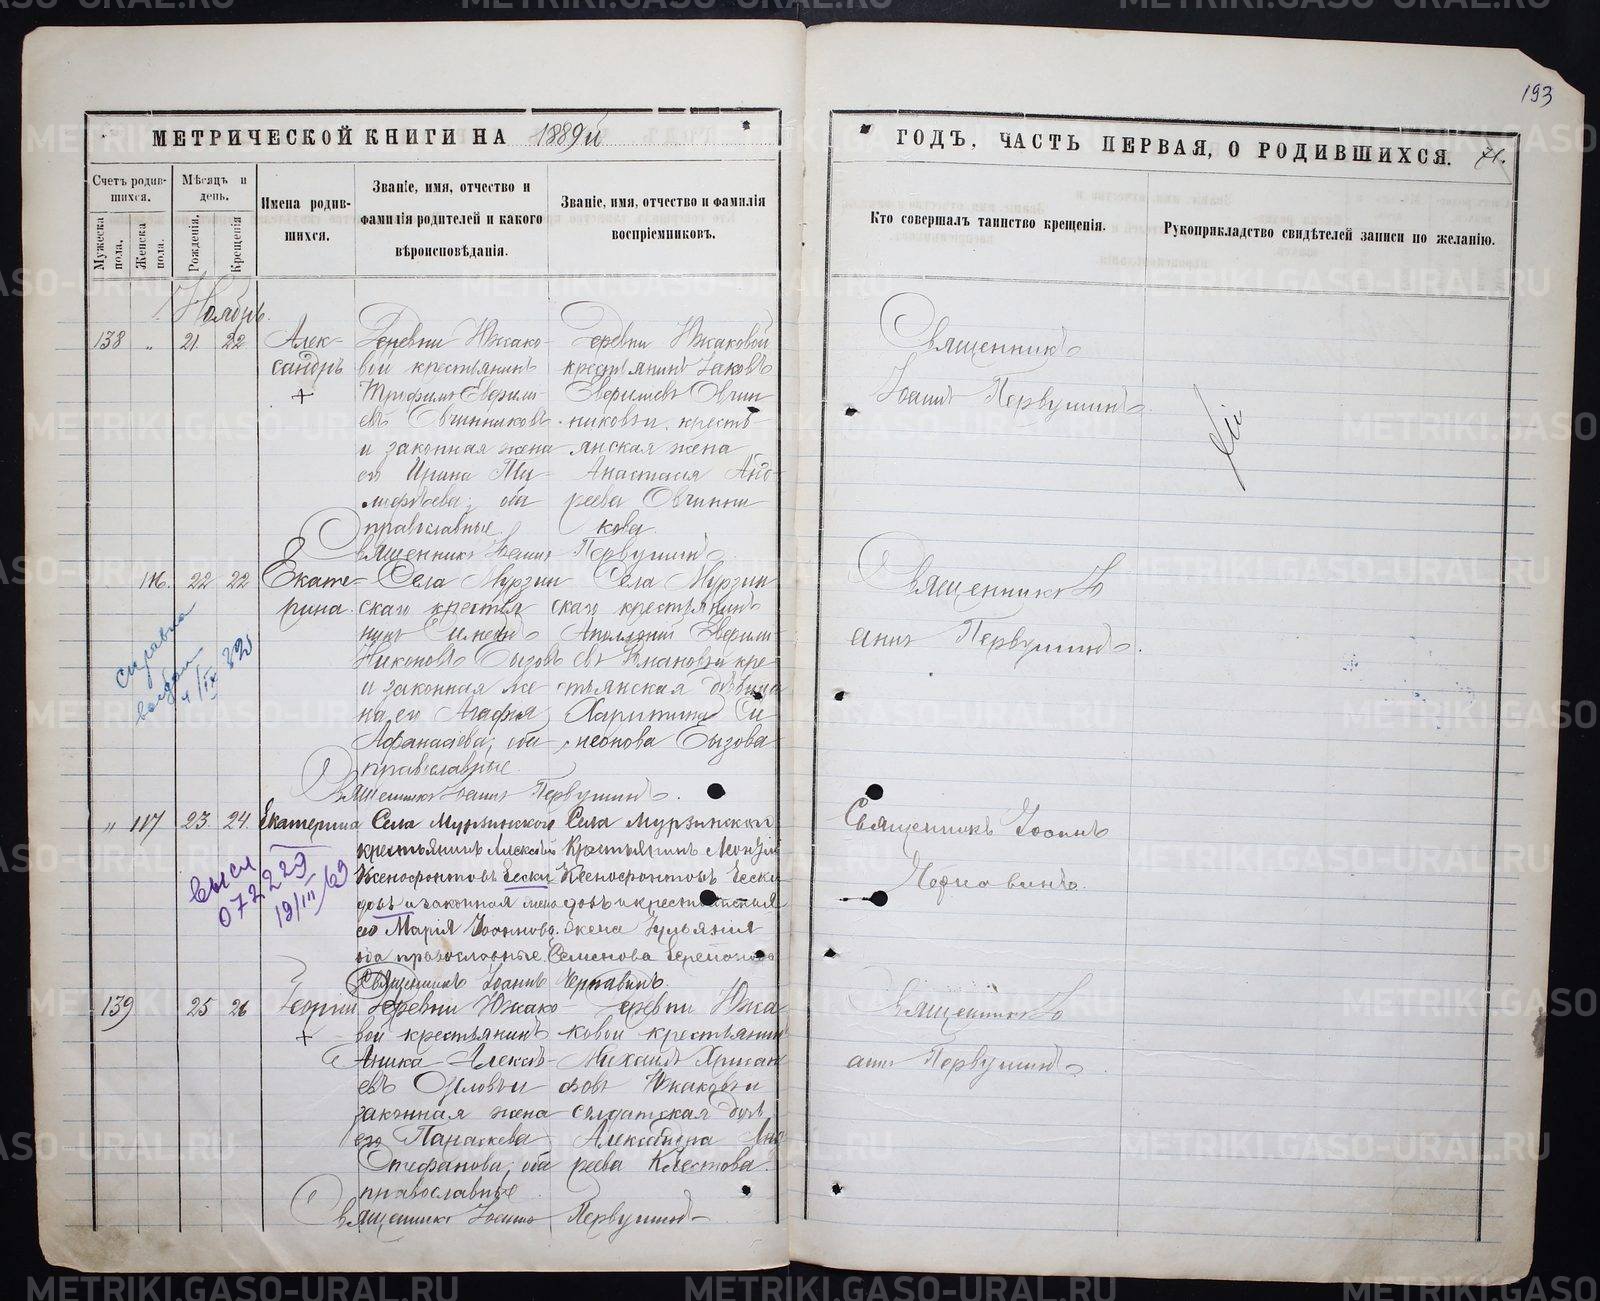 193
МЕТРИЧЕСКОЙ КНИГИ НА 1889й
ГОДЪ, ЧАСТЬ ПЕРВАЯ, О РОДИВШИХСЯ. 71.
Счетъ родив-
шихся.
Мужеска
пола.
Женска
пола.
Мѣсяцъ и
день.
Рожденія.
Крещенія
Имена родив-
шихся.
Званіе, имя, отчество и
фамилія родителей и какого
вѣроисповѣданія.
Званіе, имя, отчество и фамилія
воспріемниковъ.
Кто совершалъ таинство крещенія.
Рукоприкладство свидѣтелей записи по желанію.
Ноябрь.
138 " 21 22
Алек-
сандръ
+
Деревни Южако-
вой крестьянинъ
Трифилъ Ефрим-
евъ Овчинниковъ
и законная жена
его Ирина
оба
православные
Деревни Южаковой
крестьянинъ Іаковъ
Овчин-
никовъ и крестъ-
янская жена
Анастасія Анд-
реева Овчинни-
кова.
Священникъ Іоаннъ Первушинъ.
Священникъ
Іоаннъ Первушинъ.
116. 22 22
Екате-
рина.
Села Мурзин
скаго крестья
нинъ Симеонъ
Никоновъ Сызовъ
и законная же-
на его Агафія
Афанасіева, оба
православные.
Села Мурзин
скаго крестьянинъ
кре-
стьянская дѣвица
Харитина Си-
меонова Сызова
Священникъ Іоаннъ Первушинъ.
Священникъ Іо
аннъ Первушинъ.
справка
выдан
4/IX 82
" 117 23 24
Екатерина
Села Мурзинского
крестьянинъ Алексѣй
Ксенофонтовъ Ески
довъ и законная жена
его Марія Іоаннова.
оба православные.
Села Мурзинского
Крестьянинъ Леонтій
Ксенофонтовъ Ески
довъ и крестьянская
жена Іульянія
Семенова
Священникъ Іоаннъ Чернавинъ.
Священникъ Іоаннъ
Чернавинъ.
высл
072229
19/III 69
139 25 26
Георгій
+
Деревни Южако-
вой крестьянинъ
Аника Алексѣ-
евъ Орловъ и
законная жена
его Параскева
Стефанова, оба
православные
Деревни Южа-
ковой крестьянин
Михаилъ Хрисан
фовъ Южаковъ и
солдатская дочь
Александра Анд
реева Клестова.
Священникъ Іоаннъ Первушинъ
Священникъ Іо
аннъ Первушинъ.
METRIKI.GASO-URAL.RU